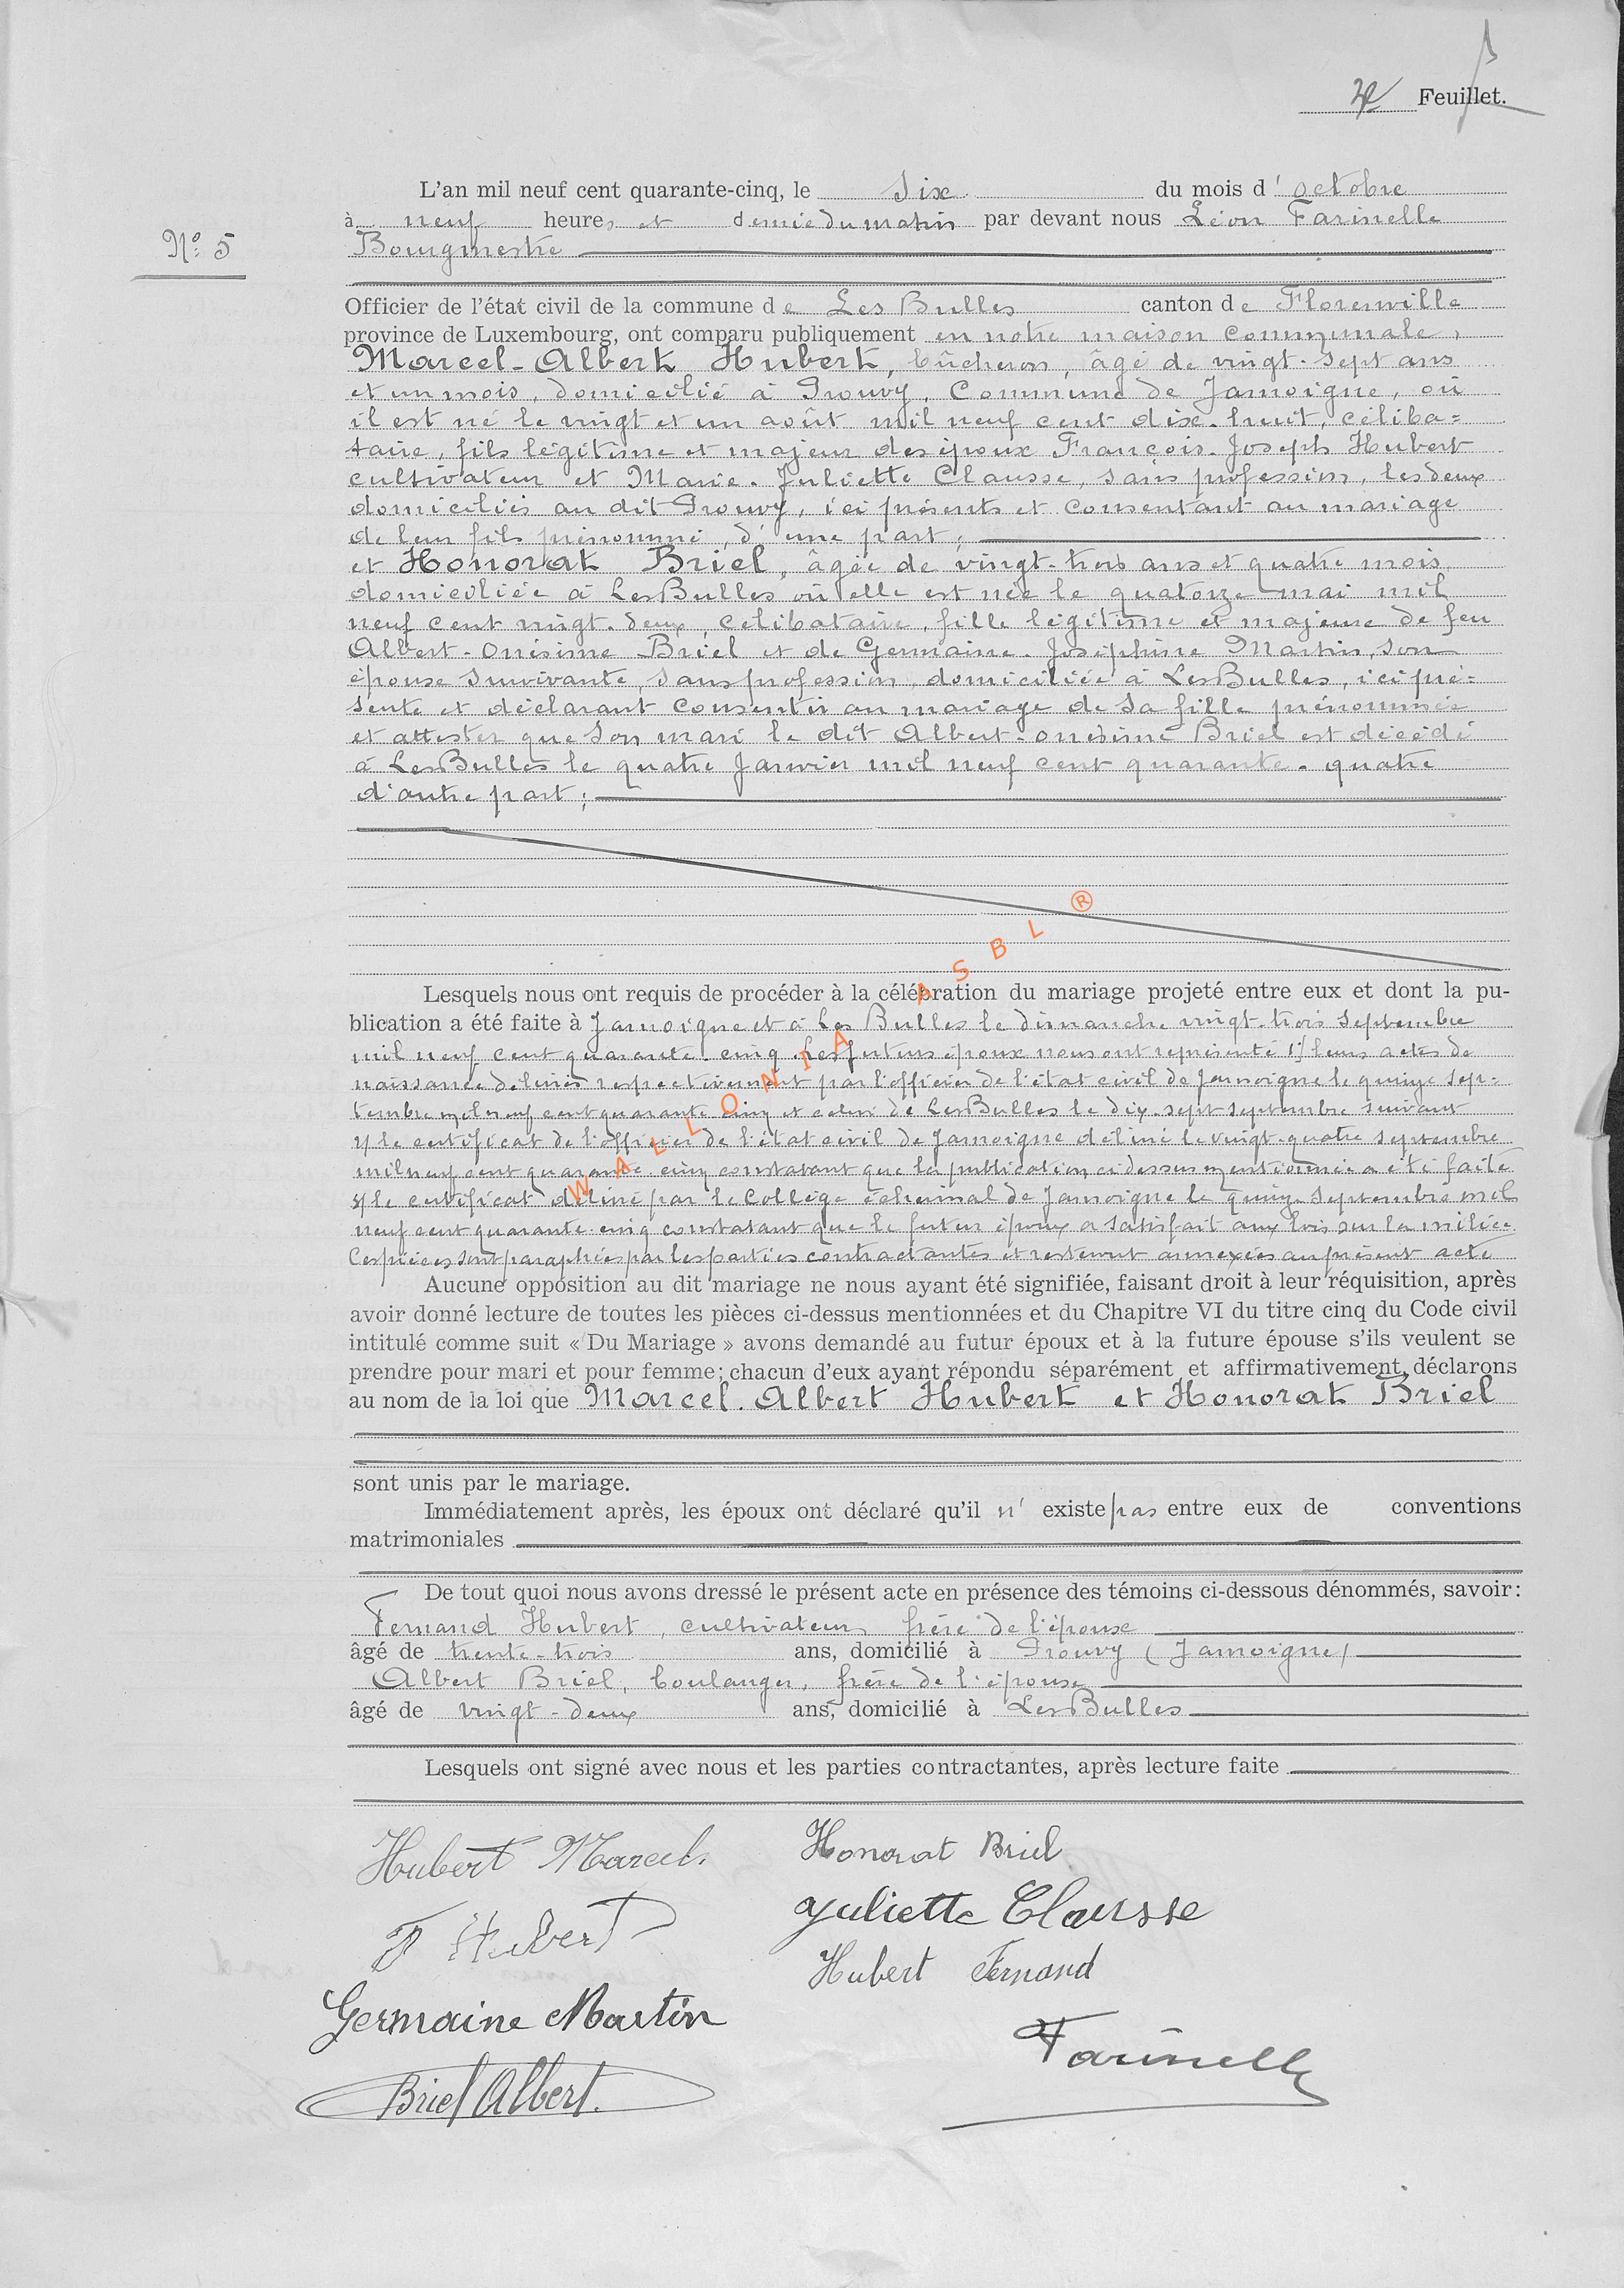 2e Feuillet.
L'an mil neuf cent quarante-cinq, le six du mois d'octobre
à neuf heures et demie du matin par devant nous Léon Farinelle
Nº 5
Bourgmestre
Officier de l'état civil de la commune de Les Bulles canton de Florenville
province de Luxembourg, ont comparu publiquement en notre maison communale,
Marcel-Albert Hubert, bûcheron, âgé de vingt-sept ans
et un mois, domicilié à Prouvy, Commune de Jamoigne, où
il est né le vingt et un août mil neuf cent dix-huit, céliba=
taire, fils légitime et majeur des époux François-Joseph Hubert
cultivateur et Marie-Juliette Clausse, sans profession, les deux
domiciliés au dit Prouvy, ici présents et consentant au mariage
de leur fils prénommé, d'une part;
et Honorat Briel, âgée de vingt-trois ans et quatre mois,
domiciliée à Les Bulles où elle est née le quatorze mai mil
neuf cent vingt-deux, célibataire, fille légitime et majeure de feu
Albert-Onésime Briel et de Germaine-Joséphine Martin, son
épouse survivante, sans profession, domiciliée à Les Bulles, ici pré=
sente et déclarant consentir au mariage de sa fille prénommée
et attester que son mari le dit Albert-Onésime Briel est décédé
à Les Bulles le quatre Janvier mil neuf cent quarante-quatre
d'autre part;
Lesquels nous ont requis de procéder à la célébration du mariage projeté entre eux et dont la pu-
blication a été faite à Jamoigne et à Les Bulles le dimanche vingt-trois septembre
mil neuf cent quarante-cinq. Les futurs époux nous ont représenté 1/ leurs actes de
naissance délivrés respectivement par l'officier de l'état civil de Jamoigne le quinze sep=
tembre mil neuf cent quarante cinq et celui de Les Bulles le dix-sept septembre suivant
2/ le certificat de l'officier de l'état civil de Jamoigne délivré le vingt-quatre septembre
mil neuf cent quarante cinq constatant que la publication ci dessus mentionnée a été faite
3/ le certificat délivré par le Collège échevinal de Jamoigne le quinze septembre mil
neuf cent quarante-cinq constatant que le futur époux a satisfait aux lois sur la milice.
Ces pièces sont paraphées par les parties contractantes et resteront annexées au présent acte
Aucune opposition au dit mariage ne nous ayant été signifiée, faisant droit à leur réquisition, après
avoir donné lecture de toutes les pièces ci-dessus mentionnées et du Chapitre VI du titre cinq du Code civil
intitulé comme suit « Du Mariage » avons demandé au futur époux et à la future épouse s'ils veulent se
prendre pour mari et pour femme; chacun d'eux ayant répondu séparément et affirmativement, déclarons
au nom de la loi que Marcel-Albert Hubert et Honorat Briel
sont unis par le mariage.
Immédiatement après, les époux ont déclaré qu'il n'existe pas entre eux de conventions
matrimoniales
De tout quoi nous avons dressé le présent acte en présence des témoins ci-dessous dénommés, savoir:
Fernand Hubert, cultivateur, frère de l'époux
âgé de trente-trois ans, domicilié à Prouvy (Jamoigne)
Albert Briel, boulanger, frère de l'épouse
âgé de vingt-deux ans, domicilié à Les Bulles
Lesquels ont signé avec nous et les parties contractantes, après lecture faite
Hubert Marcel. Honorat Briel
F Hubert Juliette Clausse
Hubert Fernand
Germaine Martin
Farinelle
Briel Albert.
WALLONIA ASBL ®